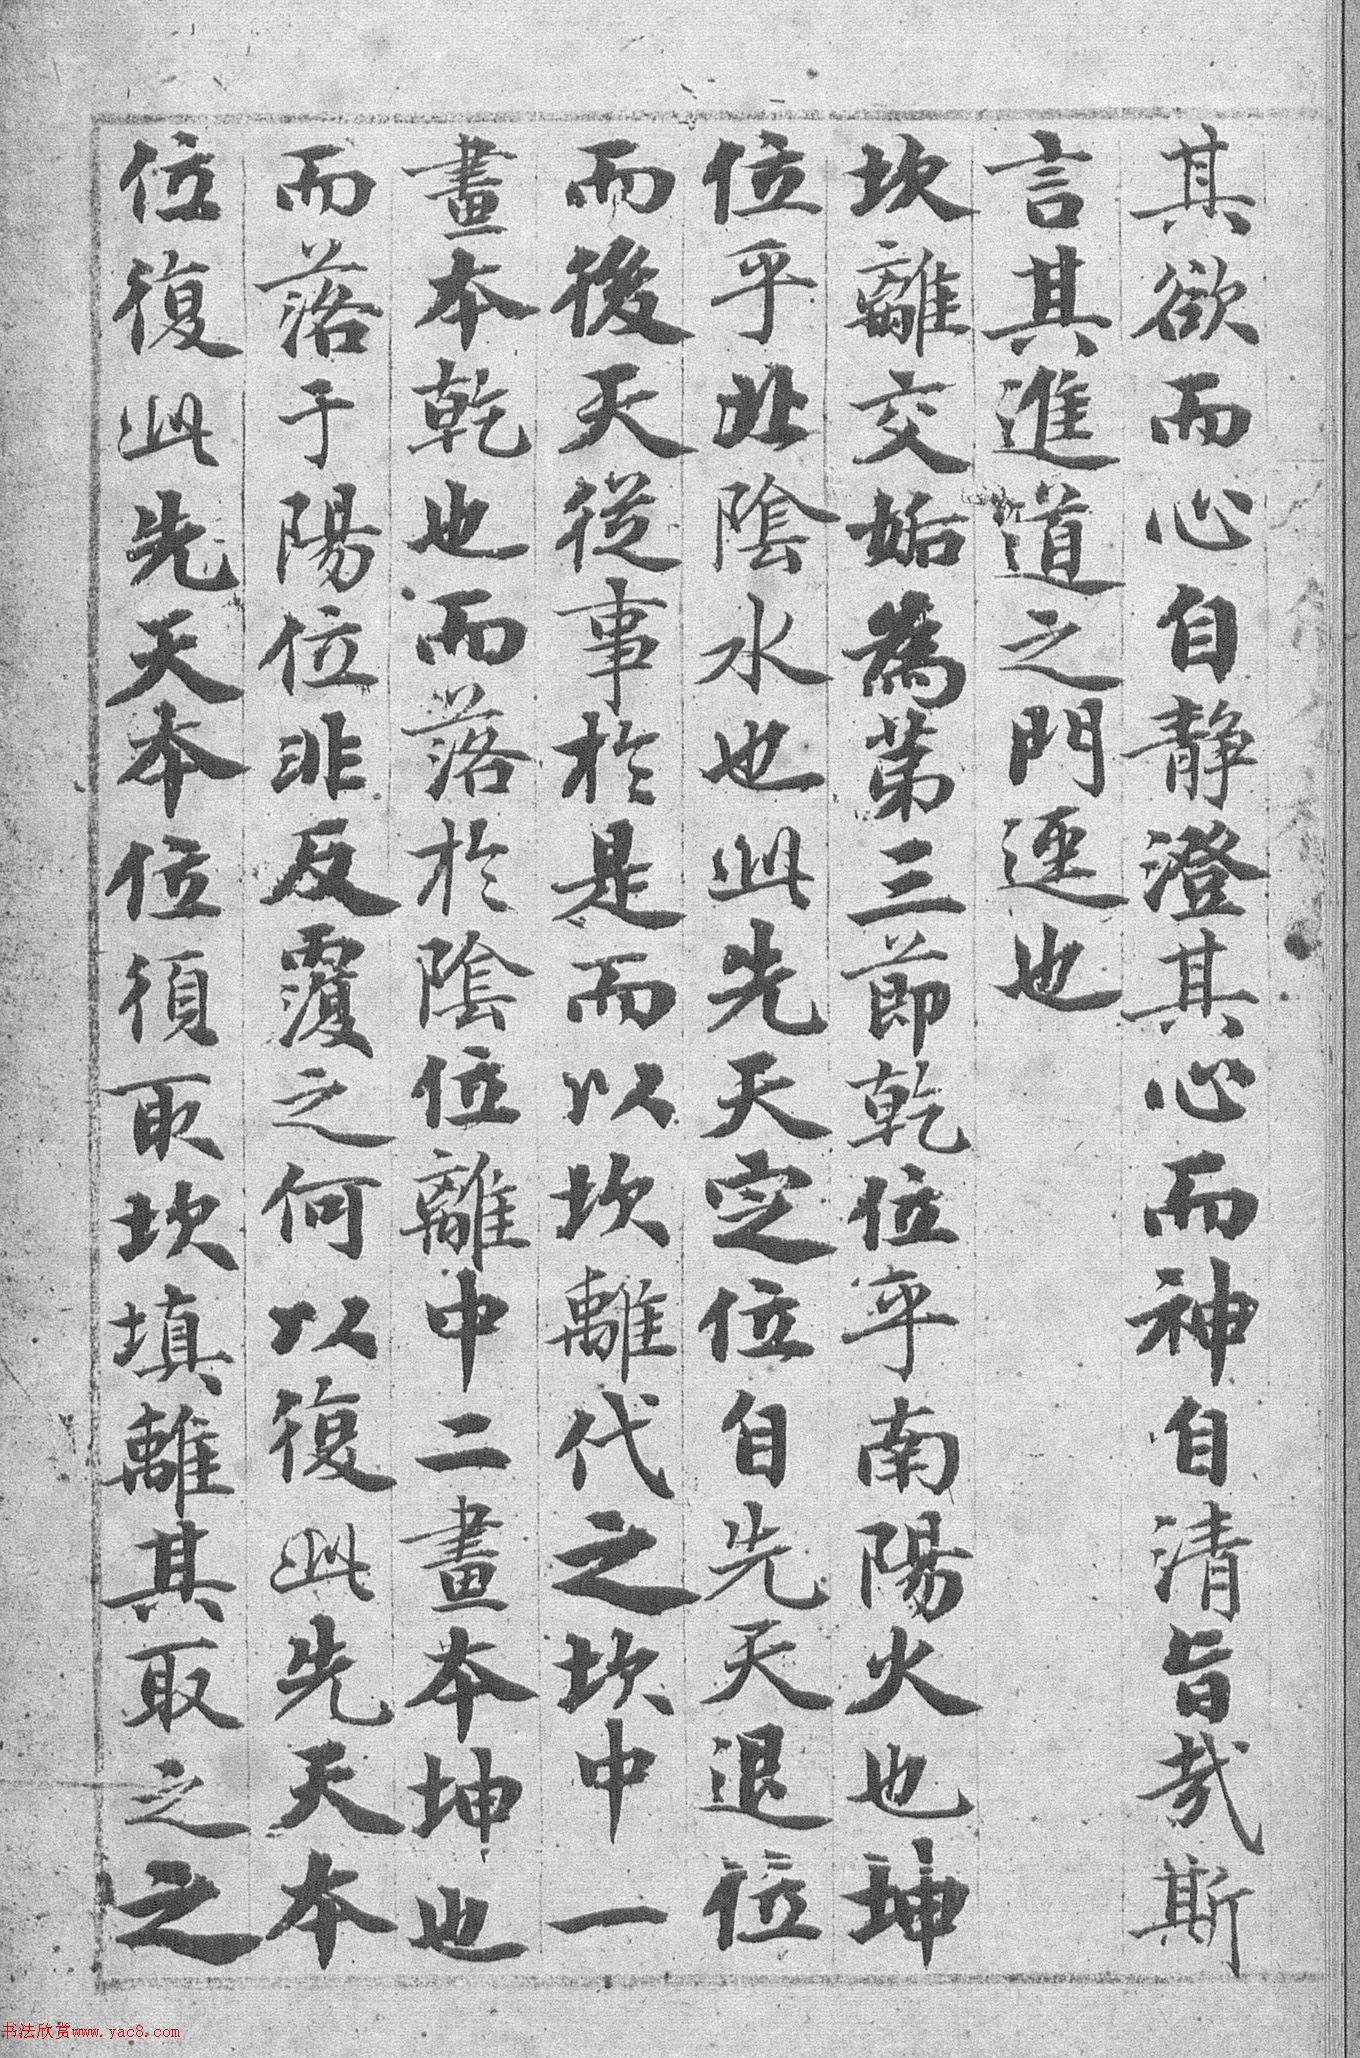 其欲而心自靜澄其心而神自清旨哉斯
言其進道之門逕也
坎離交姤為第三節乾位乎南陽火也坤
位乎北陰水也此先天定位自先天退位
而後天從事於是而以坎離代之坎中一
畫本乾也而落於陰位離中二畫本坤也
而落于陽位非反覆之何以復此先天本
位復此先天本位須取坎填離其取之之
书法欣赏www.yac8.com